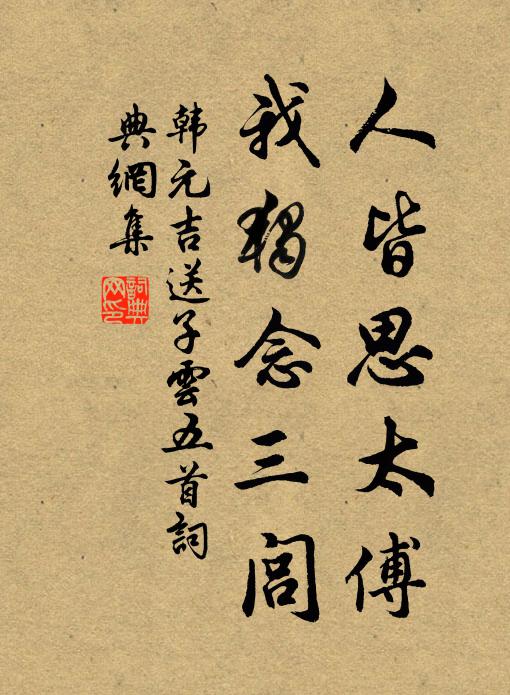 人皆思太傅
我独念三闾
韩元吉送子雲五首詞
典網集
詞典網印